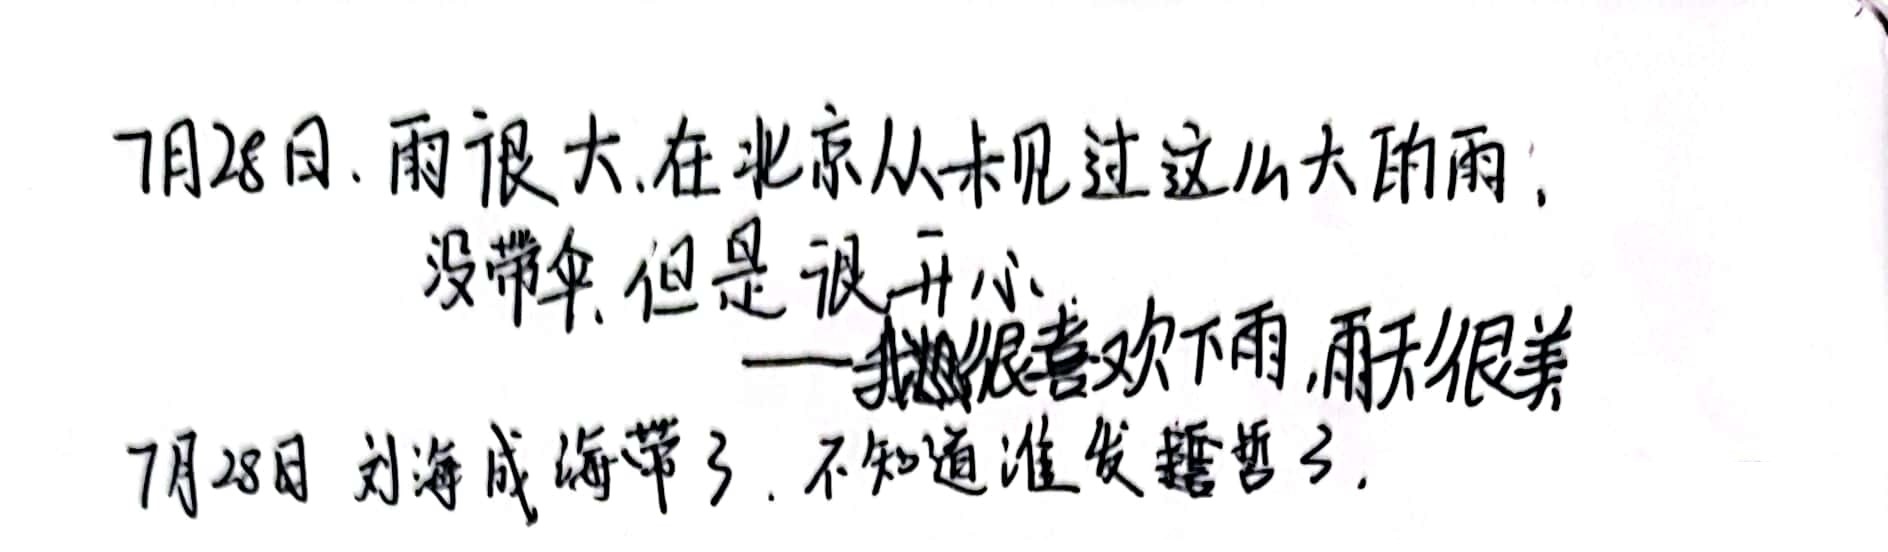 7月28日、雨很大、在北京从未见过这么大的雨；
没带伞、但是很开心、
——我很喜欢下雨，雨天很美
7月28日 刘海成海带了、不知道谁发誓了.